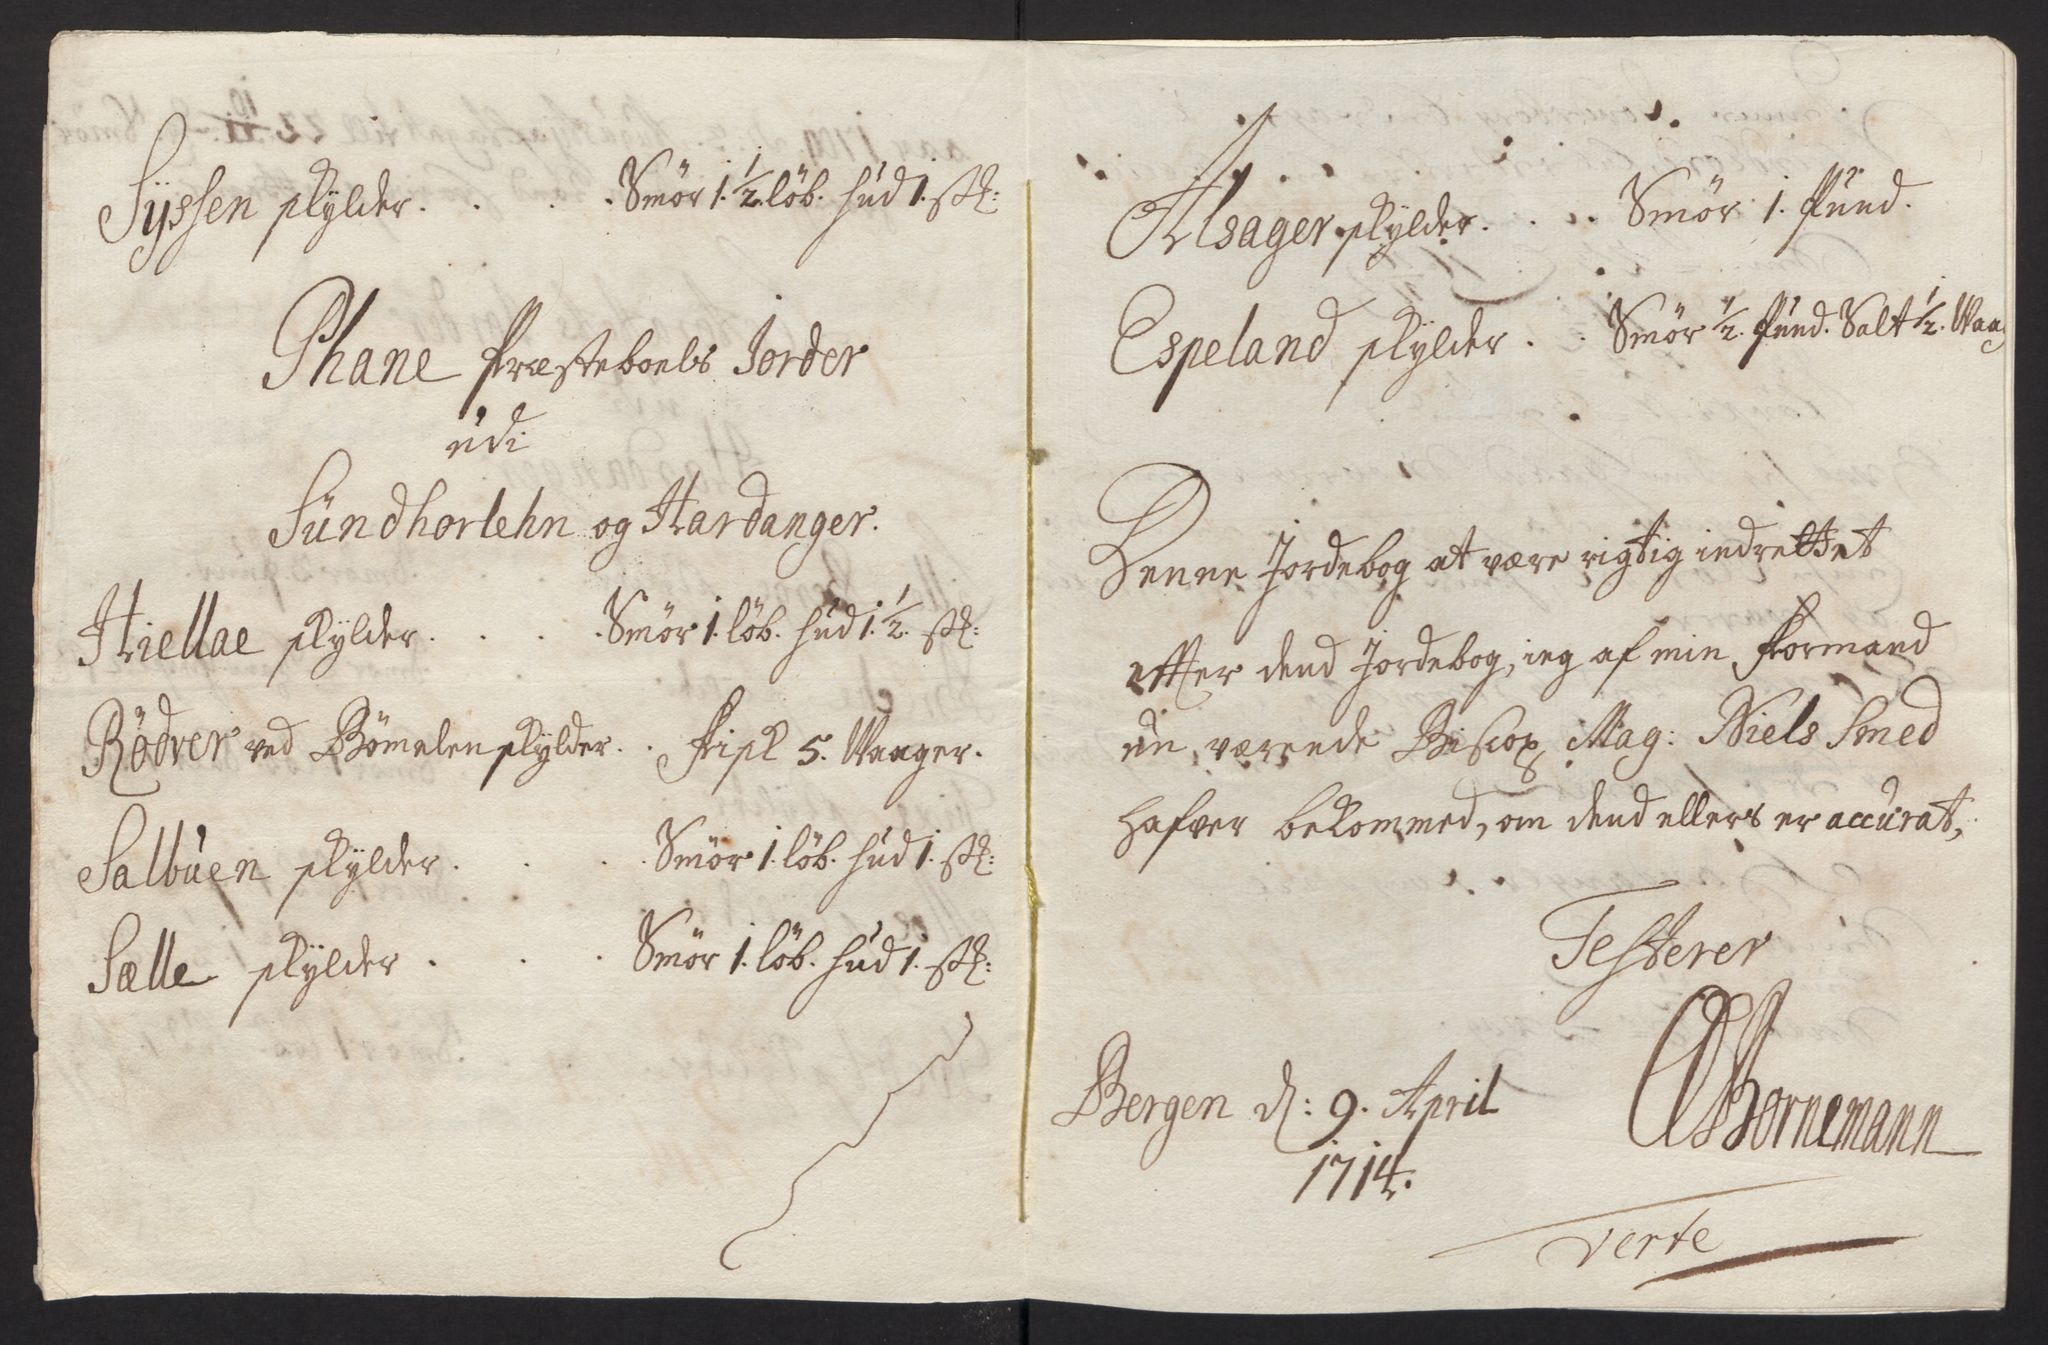 Sÿssen skÿlder. . . . Smör 1. 1/2. löb. hud 1. stk:
Phane Præsteboels Jorder
udi
Sündhorlehn og Hardanger.
Hiellae skÿlder. . . . Smör 1. löb. hud 1. 1/2. stk:
Rödver ved Bömelen skÿlder. . Fisk 5. Waager.
Salbuen skÿlder. . . . Smör 1. löb. hud 1. stk:
Sælle skÿlder . . . Smör 1. löb. hud 1. stk:
Alsager skÿlder. . . Smör 1. Pund.
Espeland skÿlder . . Smör 1/2. Pund. Salt 1/2. Waag
Denne Jordebog at være rigtig indrettet
efter dend Jordebog, ieg af min Formand
nu værende Biscop Mag: Niels Smed
hafver bekommed, om dend ellers er accurat,
Testerer
Bergen d: 9. April
1714.
Bornemann
Verte